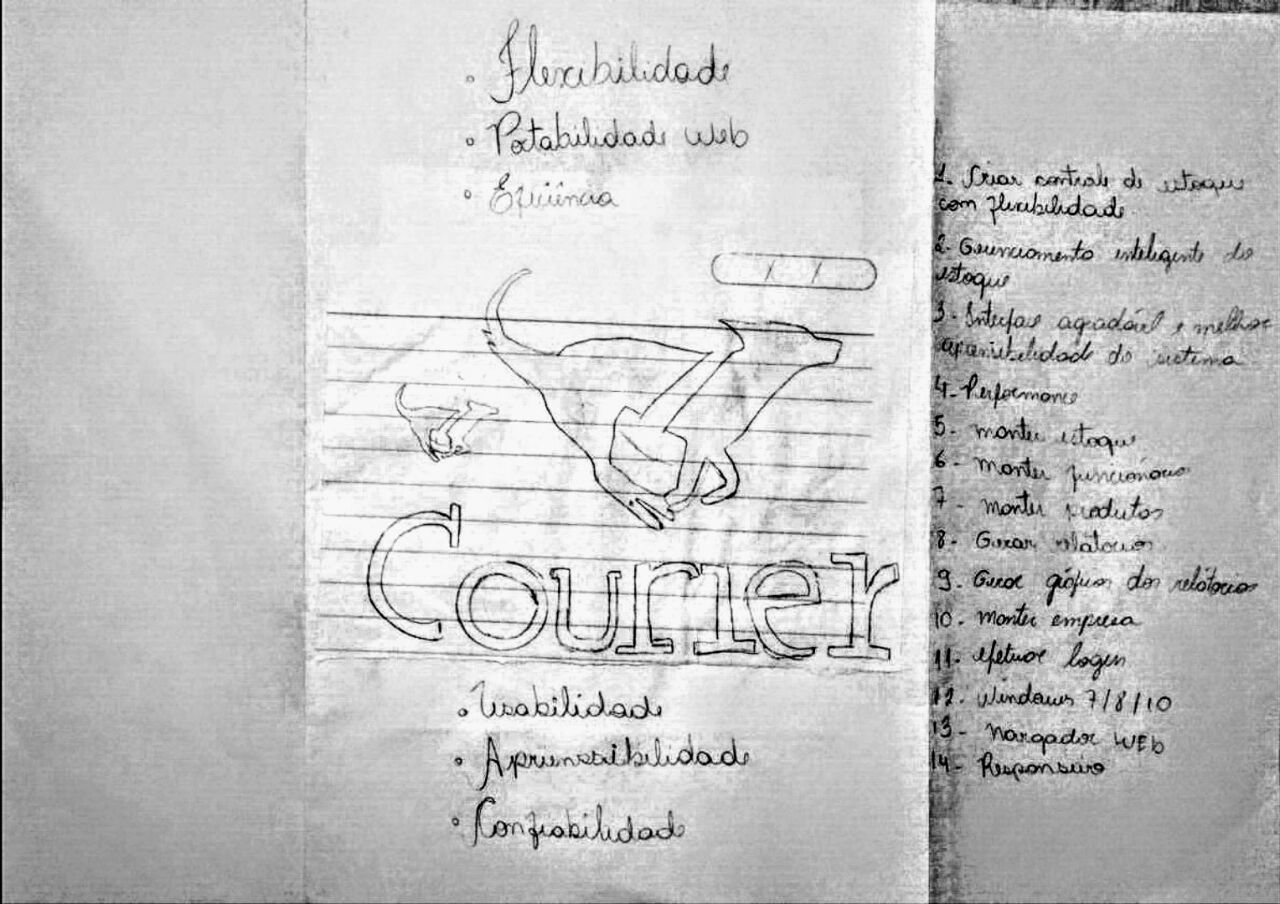 • Flexibilidade
• Portabilidade Web
• Eficiência
/ /
Courier
• Usabilidade
• Apriensibilidade
• Confiabilidade
1- Criar controle de estoque
com flexibilidade
2- Gerenciamento inteligente do
estoque
3- Interfae agradável e melhor
do sistema
4- Performance
5- manter estoque
6- Manter funcionários
7- manter produtos
8- Gerar relátorios
9- Gerar gráficos dos relátorios
10- manter empresa
11- efetuar login
12- Windows 7/8/10
13- Navgador WEb
14- Responsivo